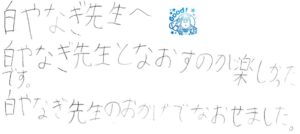 白やなぎ先生へ
Good!
白やなぎ先生となおすのが楽しかった
です。
白やなぎ先生のおかげでなおせました。